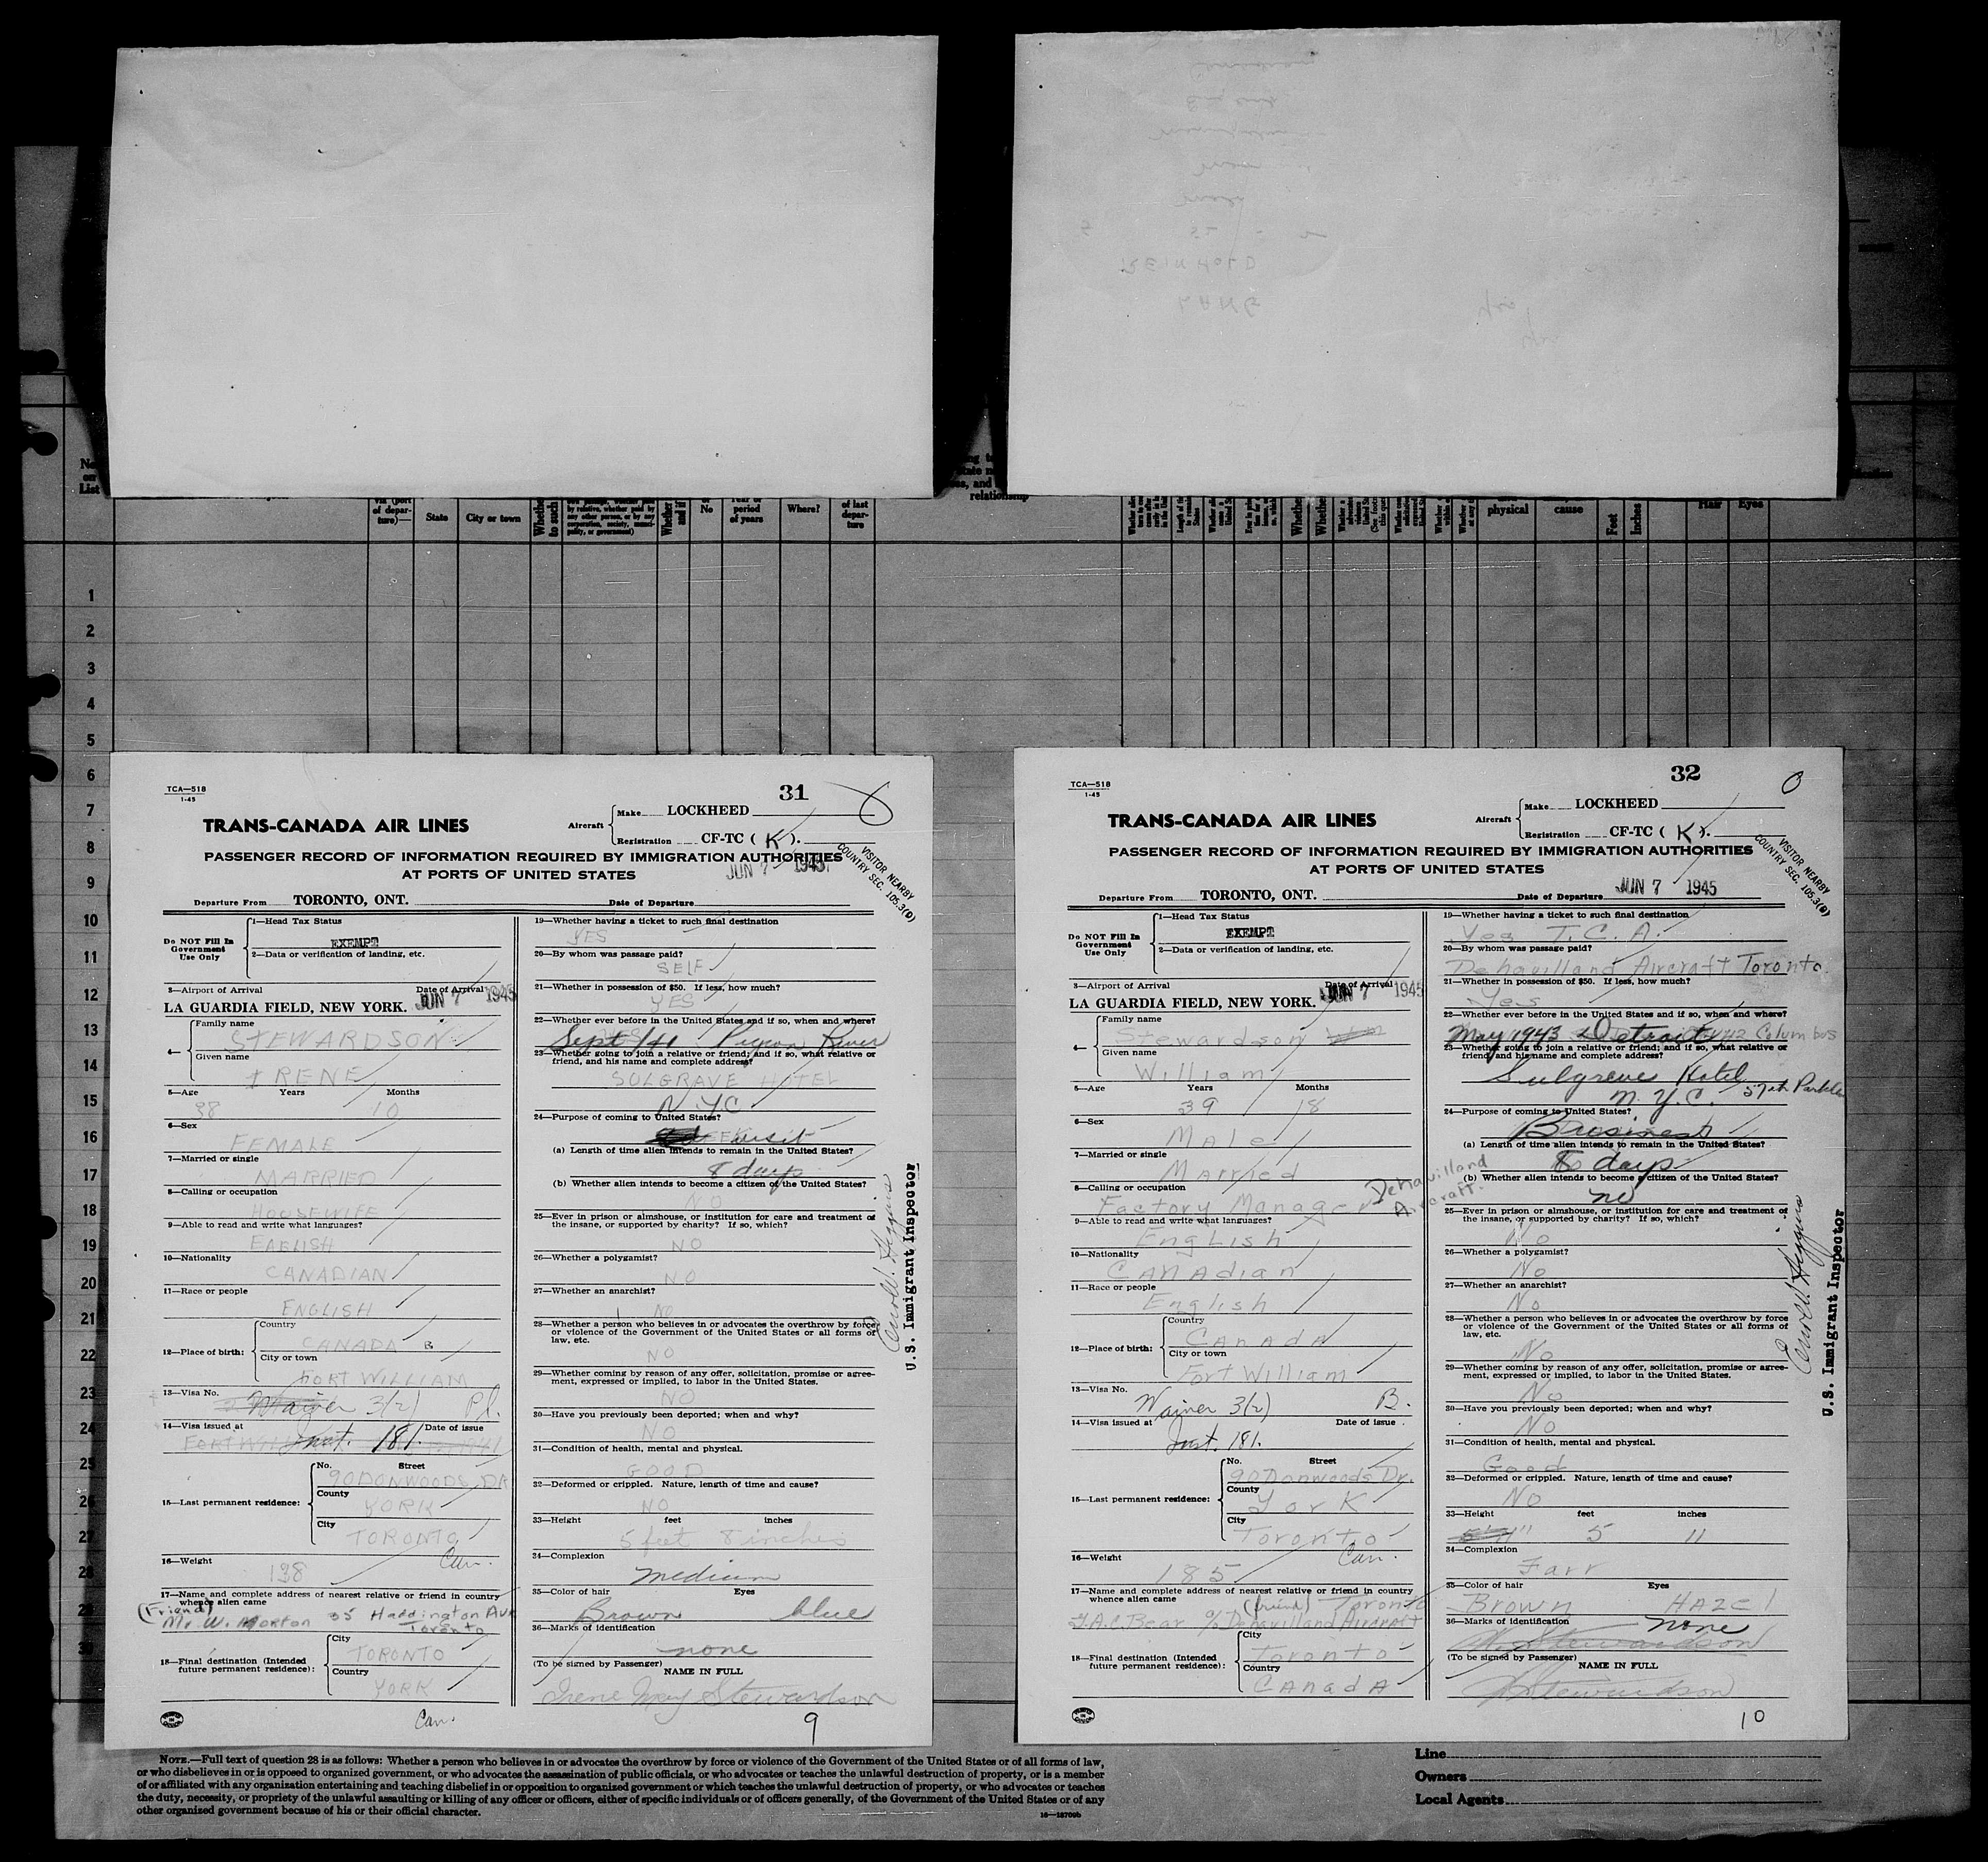 No. on List
via (port of departure)—
State
City or town
No
period of years
Where?
of last departure
relationship
physical
cause
Feet
Inches
Hair
Eyes
1
2
3
4
5
6
7
8
9
10
11
12
13
14
15
16
17
18
19
20
21
22
23
24
25
26
27
28
29
30
TCA—518
1-45
31
TRANS-CANADA AIR LINES
Aircraft
Make LOCKHEED
Registration CF-TC ( K ).
PASSENGER RECORD OF INFORMATION REQUIRED BY IMMIGRATION AUTHORITIES
AT PORTS OF UNITED STATES
JUN 7 1945
VISITOR NEARBY
COUNTRY SEC. 105.3(D)
Departure From TORONTO, ONT. Date of Departure
Do NOT Fill In
Government
Use Only
1—Head Tax Status
EXEMPT
2—Data or verification of landing, etc.
3—Airport of Arrival Date of Arrival
LA GUARDIA FIELD, NEW YORK. JUN 7 1945
4—
Family name
STEWARDSON
Given name
IRENE
5—Age Years Months
38 10
6—Sex
FEMALE
7—Married or single
MARRIED
8—Calling or occupation
HOUSEWIFE
9—Able to read and write what languages?
ENGLISH
10—Nationality
CANADIAN
11—Race or people
ENGLISH
12—Place of birth:
Country
CANADA B
City or town
FORT WILLIAM
13—Visa No.
Waiver 3(2) Pl.
14—Visa issued at Date of issue
Inst. 181.
15—Last permanent residence:
No. Street
90 DONWOODS DR
County
YORK
City
TORONTO
Can.
16—Weight
138
17—Name and complete address of nearest relative or friend in country
whence alien came
(Friend)
Mr. W. Morton 35 Haddington Ave
Toronto
18—Final destination (Intended
future permanent residence):
City
TORONTO
Country
YORK
Can.
19—Whether having a ticket to such final destination
YES
20—By whom was passage paid?
SELF
21—Whether in possession of $50. If less, how much?
YES
22—Whether ever before in the United States and if so, when and where?
Sept/41 Pigeon River
23—Whether going to join a relative or friend; and if so, what relative or
friend, and his name and complete address?
SOLGRAVE HOTEL
N.Y.C
24—Purpose of coming to United States?
visit
(a) Length of time alien intends to remain in the United States?
8 days
(b) Whether alien intends to become a citizen of the United States?
NO
25—Ever in prison or almshouse, or institution for care and treatment of
the insane, or supported by charity? If so, which?
NO
26—Whether a polygamist?
NO
27—Whether an anarchist?
NO
28—Whether a person who believes in or advocates the overthrow by force
or violence of the Government of the United States or all forms of
law, etc.
NO
29—Whether coming by reason of any offer, solicitation, promise or agree-
ment, expressed or implied, to labor in the United States.
NO
30—Have you previously been deported; when and why?
NO
31—Condition of health, mental and physical.
GOOD
32—Deformed or crippled. Nature, length of time and cause?
NO
33—Height feet inches
5 feet 8 inches
34—Complexion
medium
35—Color of hair Eyes
Brown blue
36—Marks of identification
none
(To be signed by Passenger)
NAME IN FULL
Irene May Stewardson
9
U.S. Immigrant Inspector
TCA—518
1-45
32
TRANS-CANADA AIR LINES
Aircraft
Make LOCKHEED
Registration CF-TC ( K ).
PASSENGER RECORD OF INFORMATION REQUIRED BY IMMIGRATION AUTHORITIES
AT PORTS OF UNITED STATES
VISITOR NEARBY
COUNTRY SEC. 105.3(D)
JUN 7 1945
Departure From TORONTO, ONT. Date of Departure
Do NOT Fill In
Government
Use Only
1—Head Tax Status
EXEMPT
2—Data or verification of landing, etc.
3—Airport of Arrival Date of Arrival
LA GUARDIA FIELD, NEW YORK. JUN 7 1945
4—
Family name
Stewardson
Given name
William
5—Age Years Months
39 8
6—Sex
Male
7—Married or single
Married
8—Calling or occupation
Factory Manager Dehavilland Aircraft.
9—Able to read and write what languages?
English
10—Nationality
CANAdian
11—Race or people
English
12—Place of birth:
Country
CANAdA
City or town
Fort William
13—Visa No.
Waiver 3(2) B.
14—Visa issued at Date of issue
Inst. 181.
15—Last permanent residence:
No. Street
90 Donwoods Dr.
County
York
City
Toronto
Can.
16—Weight
185
17—Name and complete address of nearest relative or friend in country
whence alien came
(friend) Toronto
Bear c/o Dehavilland Aircraft
18—Final destination (Intended
future permanent residence):
City
Toronto
Country
CANAdA
19—Whether having a ticket to such final destination
Yes T.C.A.
20—By whom was passage paid?
Dehavilland Aircraft Toronto.
21—Whether in possession of $50. If less, how much?
Yes
22—Whether ever before in the United States and if so, when and where?
May 1943 Detroit Columbus
23—Whether going to join a relative or friend; and if so, what relative or
friend, and his name and complete address?
Sulgrave Hotel
N.Y.C. 57th Park
24—Purpose of coming to United States?
Business
(a) Length of time alien intends to remain in the United States?
8 days
(b) Whether alien intends to become a citizen of the United States?
no
25—Ever in prison or almshouse, or institution for care and treatment of
the insane, or supported by charity? If so, which?
No
26—Whether a polygamist?
No
27—Whether an anarchist?
No
28—Whether a person who believes in or advocates the overthrow by force
or violence of the Government of the United States or all forms of
law, etc.
No
29—Whether coming by reason of any offer, solicitation, promise or agree-
ment, expressed or implied, to labor in the United States.
No
30—Have you previously been deported; when and why?
No
31—Condition of health, mental and physical.
Good
32—Deformed or crippled. Nature, length of time and cause?
No
33—Height feet inches
5 11
34—Complexion
Fair
35—Color of hair Eyes
Brown HAzel
36—Marks of identification
none
W. Stewardson
(To be signed by Passenger)
NAME IN FULL
W Stewardson
10
U.S. Immigrant Inspector
NOTE.—Full text of question 28 is as follows: Whether a person who believes in or advocates the overthrow by force or violence of the Government of the United States or of all forms of law,
or who disbelieves in or is opposed to organized government, or who advocates the assassination of public officials, or who advocates or teaches the unlawful destruction of property, or is a member
of or affiliated with any organization entertaining and teaching disbelief in or opposition to organized government or which teaches the unlawful destruction of property, or who advocates or teaches
the duty, necessity, or propriety of the unlawful assaulting or killing of any officer or officers, either of specific individuals or of officers generally, of the Government of the United States or of any
other organized government because of his or their official character.
Line
Owners
Local Agents